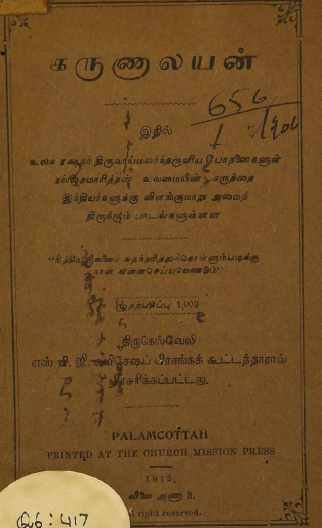 கருணாலயன்
656
இதில்
உலக ரக்ஷகர் திருவாய்மலர்ந்தருளிய போதனைகளுள்
நல்ல சமாரித்தன் உவமையின் கருத்தை
இந்தியர்களுக்கு விளங்குமாறு அமைத்
திருக்கும் பாடங்களுள்ளன
"நித்தியஜீவனைச் சுதந்தரித்துக்கொள்ளும்படிக்கு
நான் என்னசெய்யவேண்டும்"
முதற்பதிப்பு 1,000
திருநெல்வேலி
எஸ். பி. ஜி. சுவிசேஷப் பிரசங்கக் கூட்டத்தாரால்
பிரசுரிக்கப்பட்டது.
PALAMCOTTAH
PRINTED AT THE CHURCH MISSION PRESS
1912.
விலை அணா 2.
rights reserved.
417